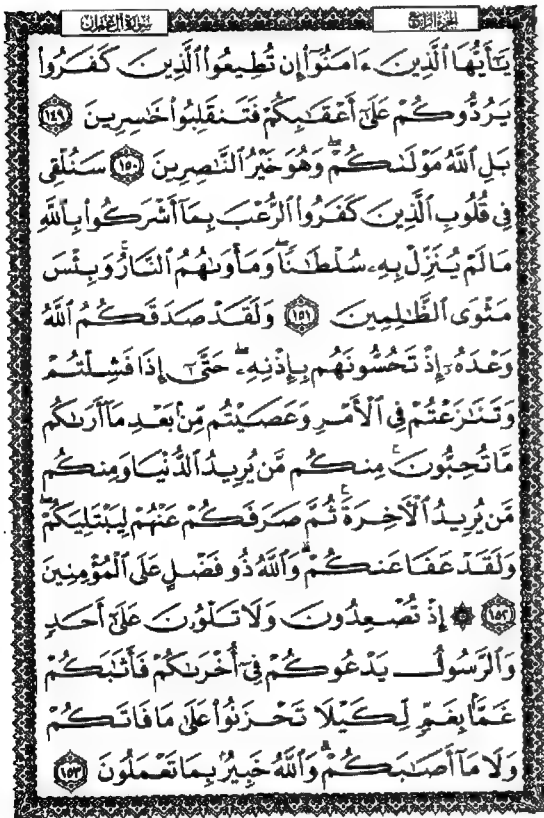 سورة آل عمران الجزء الرابع
يَٰٓأَيُّهَا ٱلَّذِينَ ءَامَنُوٓا۟ إِن تُطِيعُوا۟ ٱلَّذِينَ كَفَرُوا۟
يَرُدُّوكُمْ عَلَىٰٓ أَعْقَٰبِكُمْ فَتَنقَلِبُوا۟ خَٰسِرِينَ ١٤٩
بَلِ ٱللَّهُ مَوْلَىٰكُمْ ۖ وَهُوَ خَيْرُ ٱلنَّٰصِرِينَ ١٥٠ سَنُلْقِى
فِى قُلُوبِ ٱلَّذِينَ كَفَرُوا۟ ٱلرُّعْبَ بِمَآ أَشْرَكُوا۟ بِٱللَّهِ
مَا لَمْ يُنَزِّلْ بِهِۦ سُلْطَٰنًا ۖ وَمَأْوَىٰهُمُ ٱلنَّارُ ۚ وَبِئْسَ
مَثْوَى ٱلظَّٰلِمِينَ ١٥١ وَلَقَدْ صَدَقَكُمُ ٱللَّهُ
وَعْدَهُۥٓ إِذْ تَحُسُّونَهُم بِإِذْنِهِۦ ۖ حَتَّىٰٓ إِذَا فَشِلْتُمْ
وَتَنَٰزَعْتُمْ فِى ٱلْأَمْرِ وَعَصَيْتُم مِّنۢ بَعْدِ مَآ أَرَىٰكُم
مَّا تُحِبُّونَ ۚ مِنكُم مَّن يُرِيدُ ٱلدُّنْيَا وَمِنكُم
مَّن يُرِيدُ ٱلْأَخِرَةَ ۚ ثُمَّ صَرَفَكُمْ عَنْهُمْ لِيَبْتَلِيَكُمْ ۖ
وَلَقَدْ عَفَا عَنكُمْ ۗ وَٱللَّهُ ذُو فَضْلٍ عَلَى ٱلْمُؤْمِنِينَ
١٥٢ ۞ إِذْ تُصْعِدُونَ وَلَا تَلْوُۥنَ عَلَىٰٓ أَحَدٍ
وَٱلرَّسُولُ يَدْعُوكُمْ فِىٓ أُخْرَىٰكُمْ فَأَثَٰبَكُمْ
غَمًّۢا بِغَمٍّ لِّكَيْلَا تَحْزَنُوا۟ عَلَىٰ مَا فَاتَكُمْ
وَلَا مَآ أَصَٰبَكُمْ ۗ وَٱللَّهُ خَبِيرٌۢ بِمَا تَعْمَلُونَ ١٥٣